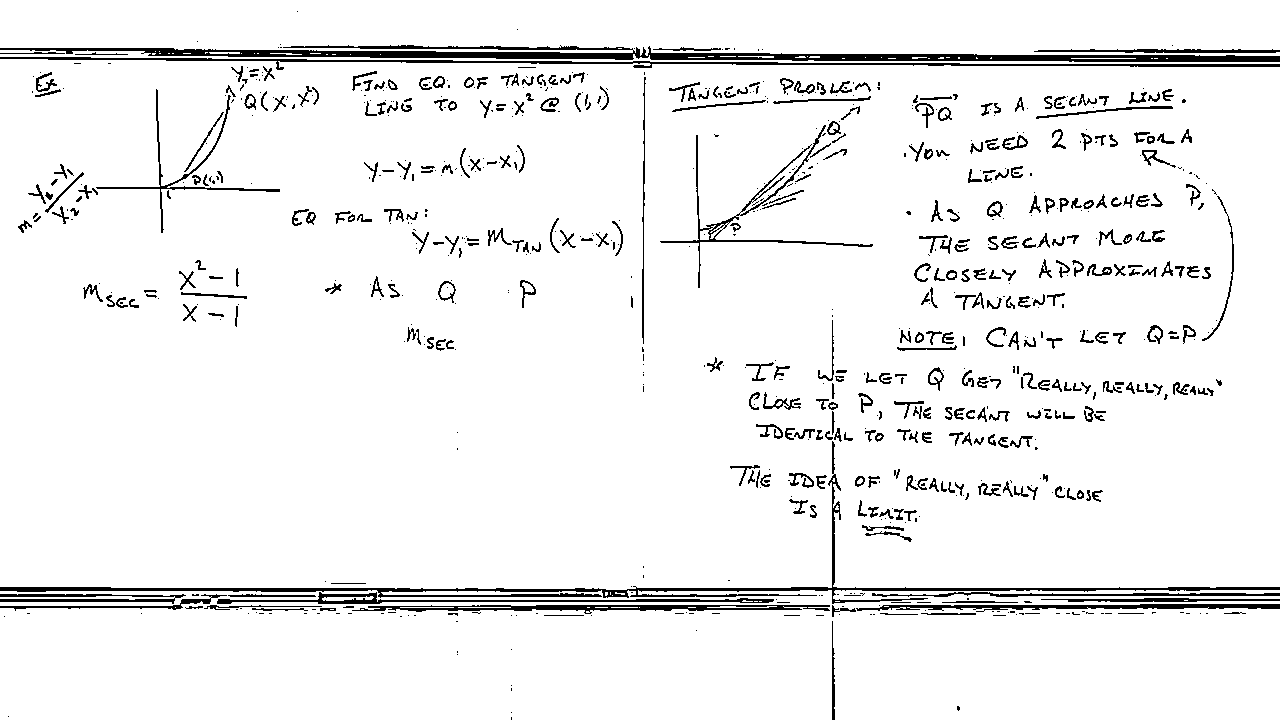 Ex
y=x²
Q(x,x²)
P(1,1)
1
m = y₂-y₁/x₂-x₁
FIND EQ. OF TANGENT
LINE TO y=x² @ (1,1)
y-y₁=m(x-x₁)
EQ FOR TAN:
y-y₁=m_TAN(x-x₁)
m_SEC = x²-1/x-1
* AS Q P
m_SEC
TANGENT PROBLEM:
Q
P
PQ IS A SECANT LINE.
· YOU NEED 2 PTS FOR A
LINE.
· AS Q APPROACHES P,
THE SECANT MORE
CLOSELY APPROXIMATES
A TANGENT.
NOTE: CAN'T LET Q=P
* IF WE LET Q GET "REALLY, REALLY, REALLY"
CLOSE TO P, THE SECANT WILL BE
IDENTICAL TO THE TANGENT.
THE IDEA OF "REALLY, REALLY" CLOSE
IS A LIMIT.